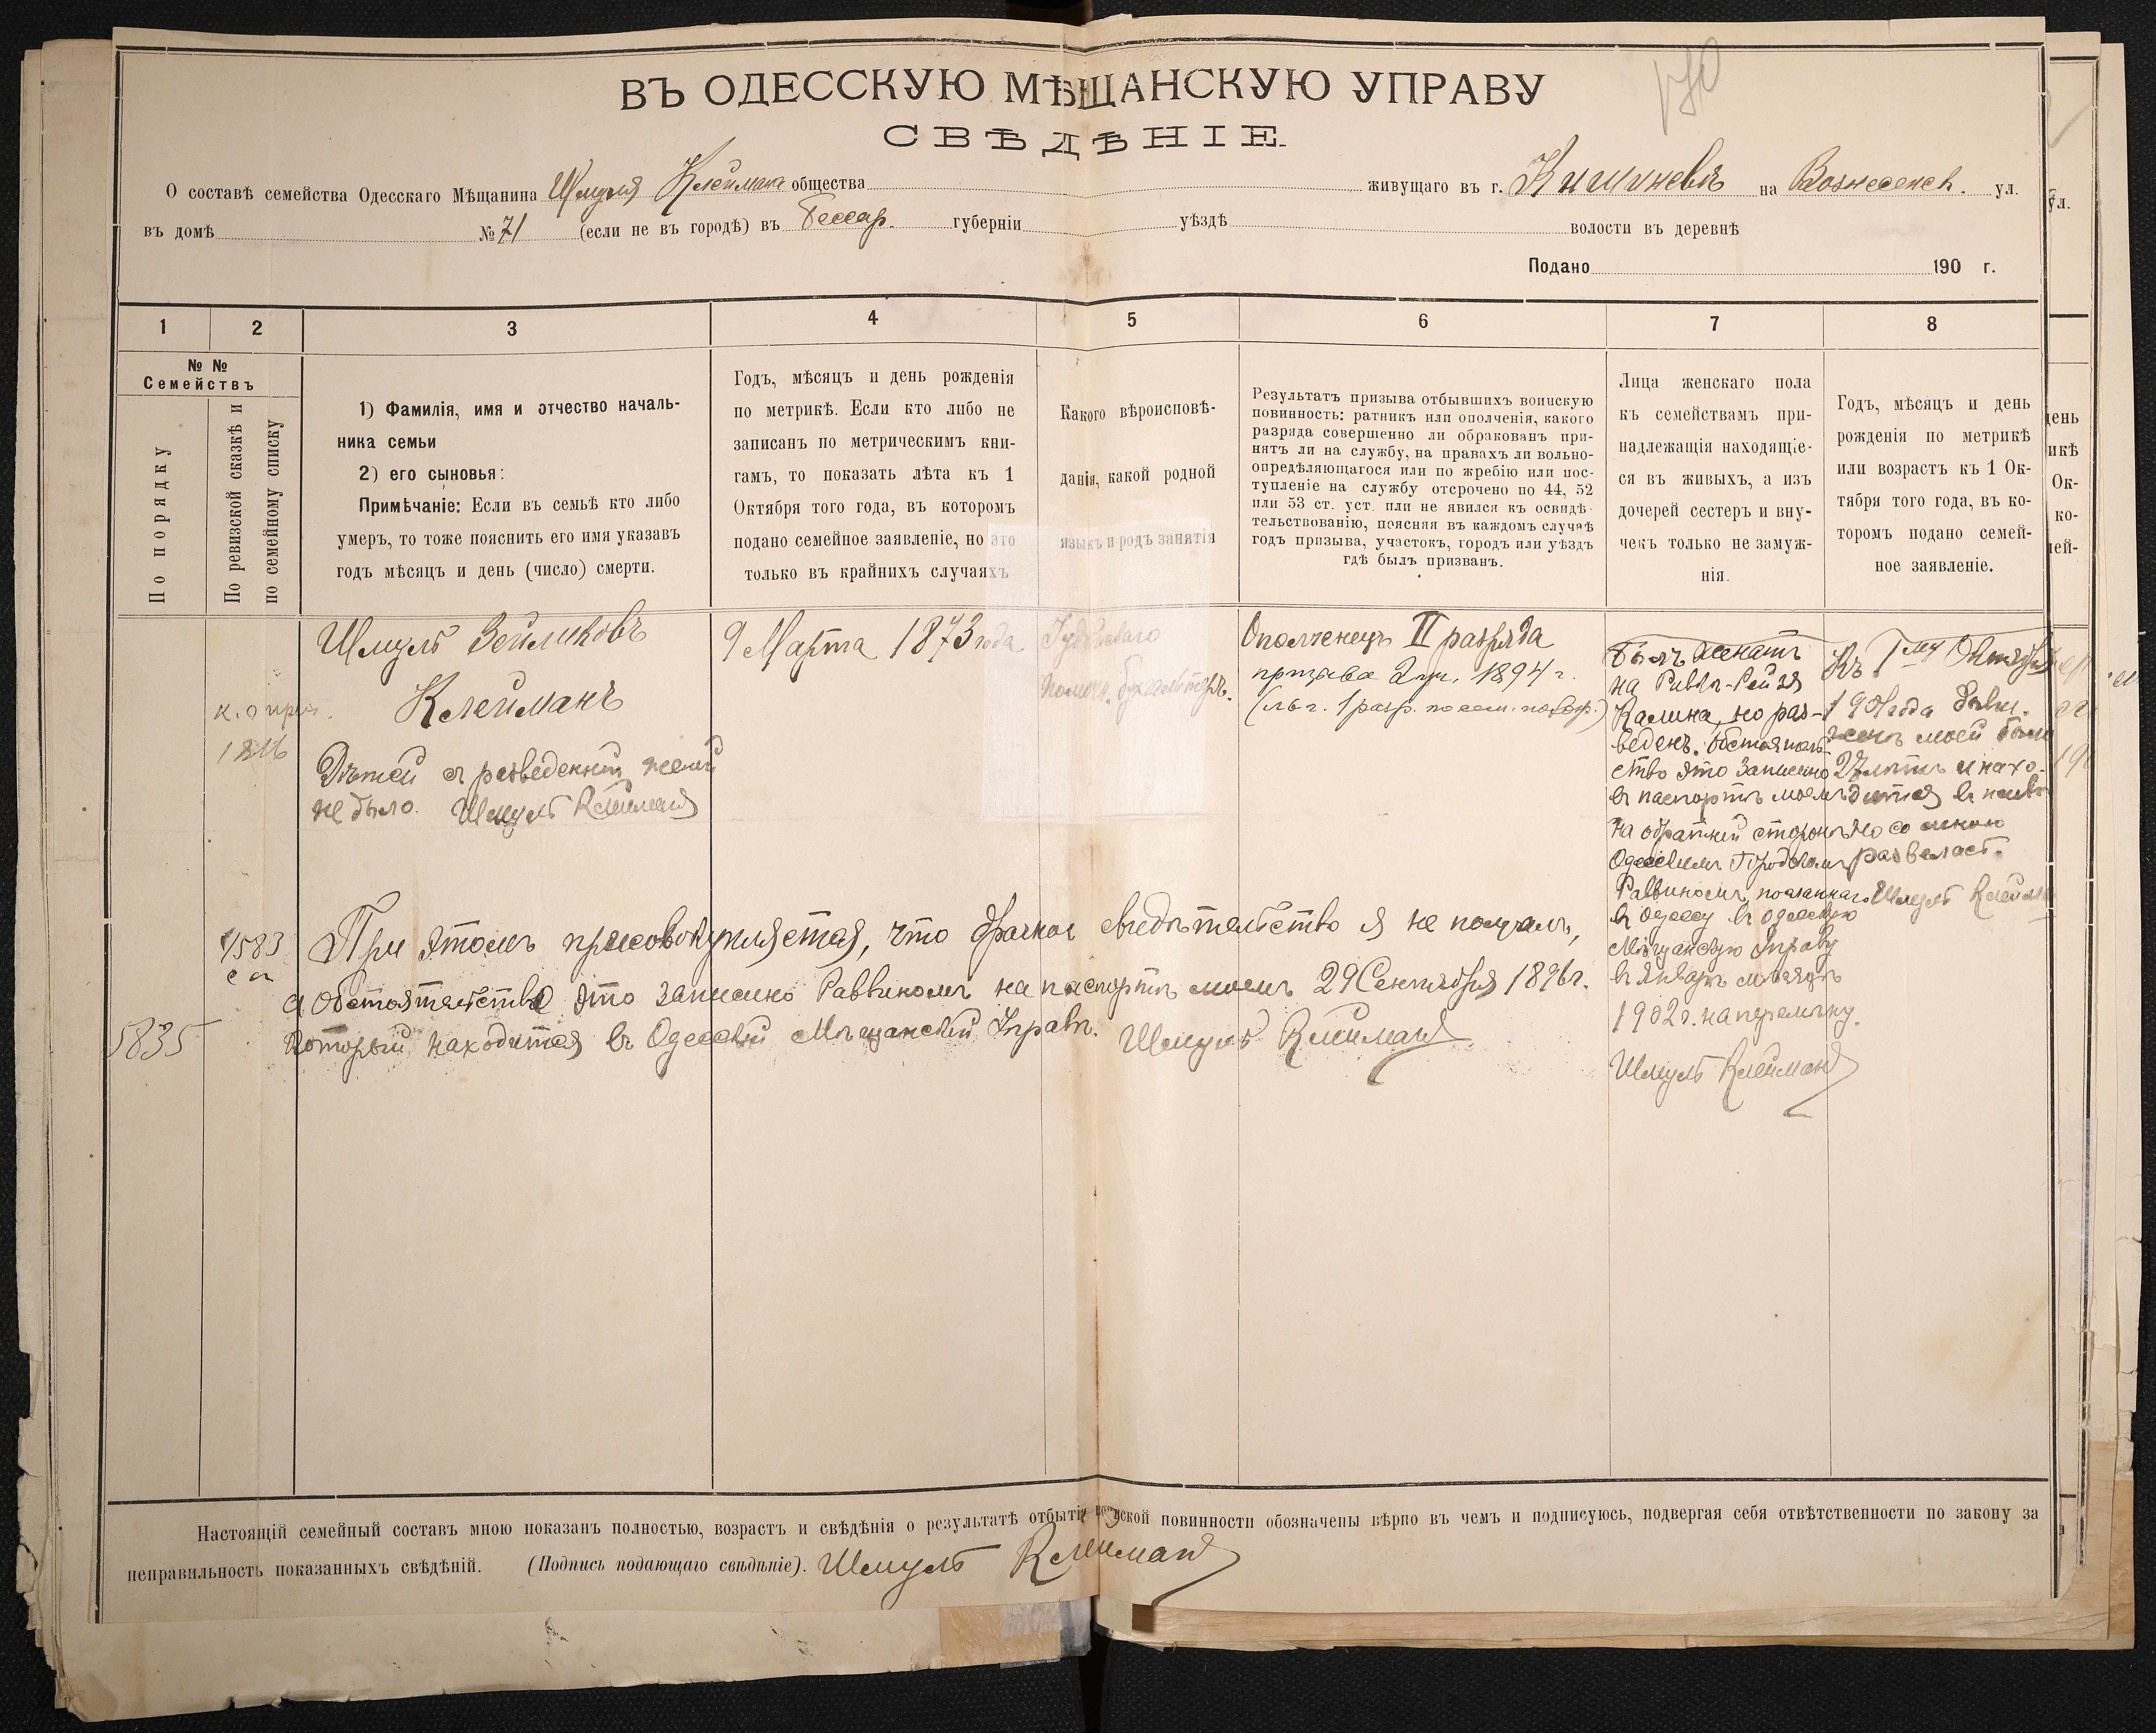 ВЪ ОДЕССКУЮ МѢЩАНСКУЮ УПРАВУ
СВѢДѢНІЕ.
О составѣ семейства Одесскаго Мѣщанина Шмуля Клейманъ общества живущаго въ г. Кишиневѣ на Вознесенск. ул.
въ домѣ № 71 (если не въ городѣ) въ Бессар. губерніи уѣздѣ волости въ деревнѣ
Подано 190 г.
1 2 3 4 5 6 7 8
№ №
Семействъ
По порядку
По ревизской сказкѣ и
по семейному списку
1) Фамилія, имя и отчество началь-
ника семьи
2) его сыновья:
Примѣчаніе: Если въ семьѣ кто либо
умеръ, то тоже пояснить его имя указавъ
годъ мѣсяцъ и день (число) смерти.
Годъ, мѣсяцъ и день рожденія
по метрикѣ. Если кто либо не
записанъ по метрическимъ кни-
гамъ, то показать лѣта къ 1
Октября того года, въ которомъ
подано семейное заявленіе, но это
только въ крайнихъ случаяхъ
Какого вѣроисповѣ-
данія, какой родной
языкъ и родъ занятія
Результатъ призыва отбывшихъ воинскую
повинность: ратникъ или ополченія, какого
разряда совершенно ли обракованъ при-
нятъ ли на службу, на правахъ ли вольно-
опредѣляющагося или по жребію или пос-
тупленіе на службу отсрочено по 44, 52
или 53 ст. уст. или не явился къ освидѣ-
тельствованію, поясняя въ каждомъ случаѣ
годъ призыва, участокъ, городъ или уѣздъ
гдѣ былъ призванъ.
Лица женскаго пола
къ семействамъ при-
надлежащія находящіе-
ся въ живыхъ, а изъ
дочерей сестеръ и вну-
чекъ только не замуж-
нія.
Годъ, мѣсяцъ и день
рожденія по метрикѣ
или возрастъ къ 1 Ок-
тября того года, въ ко-
торомъ подано семей-
ное заявленіе.
Шмуль Зейликовъ
Клейманъ
Дѣтей съ разведенной женой
не было. Шмуль Клейманъ
9 Марта 1873 года
Іудейскаго
помощ. бухгалтеръ.
Ополченецъ II разряда
призыва 2 уч. 1894 г.
(льг. 1 разр. по сем. полож.)
Былъ женатъ
на Ривкѣ-Рейзѣ
Калина, но раз-
веденъ. Обстоятель-
ство это записано
въ паспортѣ моемъ
на обратной сторонѣ
Одесскимъ Городовымъ
Раввиномъ, посланнаго
въ Одессу въ Одесскую
Мѣщанскую Управу
въ Январѣ мѣсяцѣ
1902 г. на перемѣну.
Шмуль Клейманъ
Къ 1му Октября
года бывш.
женѣ моей было
27 лѣтъ и нахо-
дится
но со мною
развелась.
Шмуль Клейман
1583
5835
При этомъ присовокупляется, что брачное свидѣтельство я не получалъ,
а обстоятельство это записано Раввиномъ на паспортѣ моемъ 29 Сентября 1896 г.
который находится въ Одесской Мѣщанской Управѣ. Шмуль Клейманъ
Настоящій семейный составъ мною показанъ полностью, возрастъ и свѣдѣнія о результатѣ отбытія воинской повинности обозначены вѣрно въ чемъ и подписуюсь, подвергая себя отвѣтственности по закону за
неправильность показанныхъ свѣдѣній. (Подпись подающаго свѣдѣніе). Шмуль Клейманъ